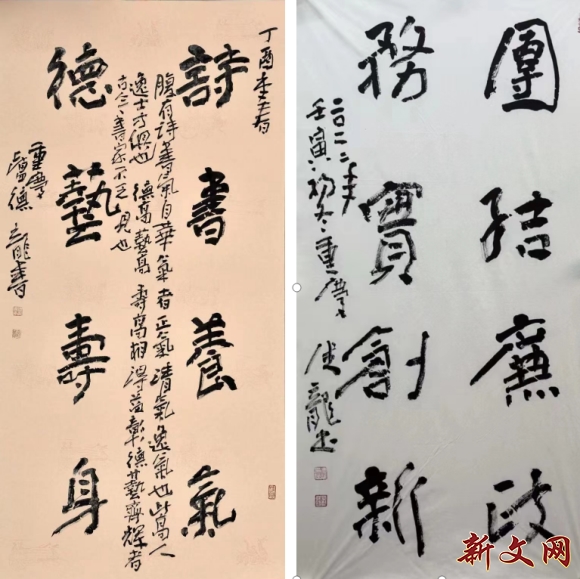 詩書養氣
丁酉
腹有詩書氣自華氣者正氣清氣逸氣也此高人
逸士方也德高藝高壽高相得益彰德藝齊輝者
古今書家不乏見也
德藝壽身
重慶
盧德龍書
團結廉政
務實創新
二〇二二年
壬寅初冬重慶龍書
新文网